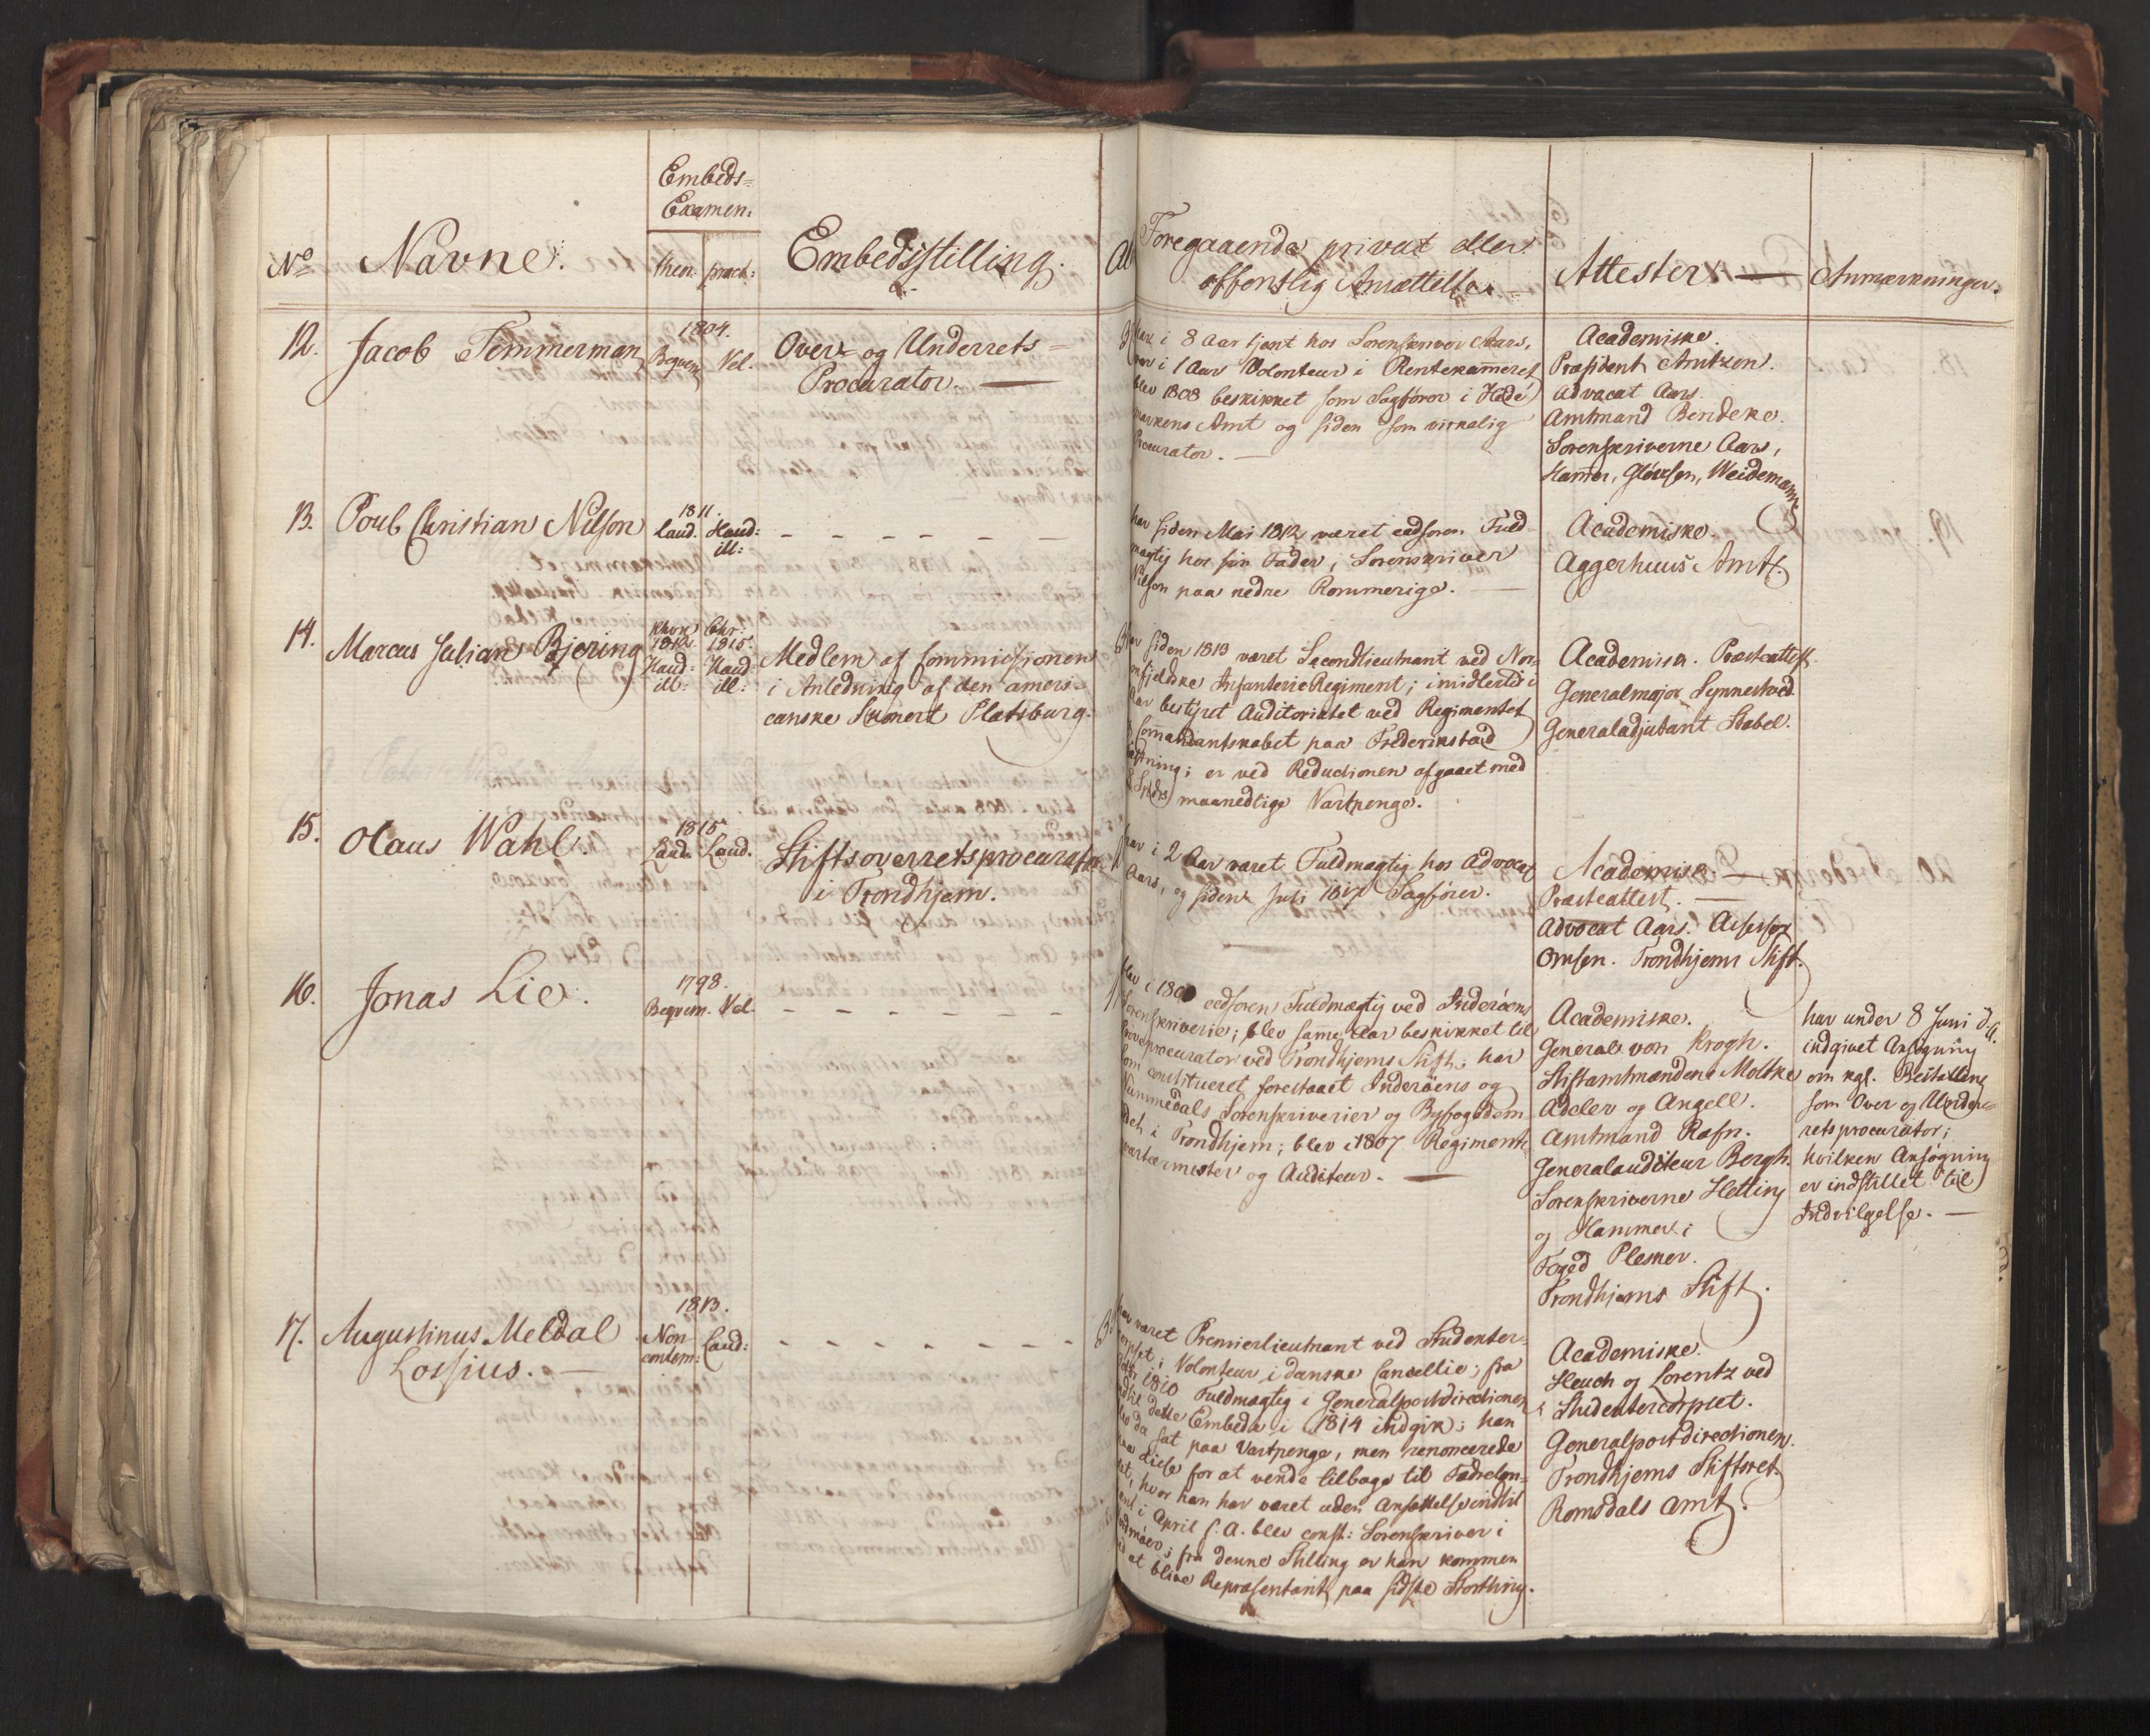 Embeds-
Examen.
No
Navne.
theor: pract:
Embedsstilling.
Foregaaende privat eller
offentlig Ansættelse.
Attester.
Anmærkninger.
12.
Jacob Temmerman
1804.
Beqvem Vel.
Over- og Underrets-
Procurator.
har i 8 Aar tjent hos Sorenskriver Aars,
var i 1 Aar Volonteur i Rentekam̄eret
blev 1808 beskikket som Sagfører i Hede-
markens Amt og siden som virkelig
Procurator.
Academiske.
Præsident Anitzen.
Advocat Aars.
Amtmand Bendeke.
Sorenskriverne Aars,
Ham̄er, Gløersen, Weidemann
13.
Poul Christian Nilson
1811.
Laud. Haud:
ill:
har siden Mai 1812 været edsoren Fuld-
mægtig hos sin Fader, Sorenskriver
Nilson paa nedre Rommerige.
Academiske.
Aggerhuus Amt.
14.
Marcus Julian Bjering
Khvn Chr:
1812. 1815.
Haud: Haud
ill: ill:
Medlem af Commissionen
i Anledning af den ameri-
canske Skonert Platsburg.
har siden 1813 været Secondlieutnant ved Nor-
enfjeldke Infanterie Regiment; imidlertid i
Aar bestyret Auditoriatet ved Regimentet
Com̄andantskabet paa Frederikstad
Fæstning; er ved Reductionen afgaaet med
8 Spdr maanedlige Vartpenge.
Academisk. Præsteattest.
Generalmajor Synnestved.
Generaladjutant Stabel.
15.
Olaus Wahl.
1815.
Laud. Laud.
Stiftsoverretsprocurator
i Trondhjem.
har i 2 Aar været Fuldmægtig hos Advocat
Aars, og siden Juli 1817 Sagfører.
Academisk.
Præsteattest.
Advocat Aars. Assessor
Omsen. Trondhjems Stift.
16.
Jonas Lie.
1798.
Beqvem. Vel.
blev i 1800 eedsoren Fuldmægtig ved Inderøens
Sorenskriverie; blev same Aar beskikket til
Prøveprocurator ved Trondhjems Stift; har
som constitueret forestaaet Inderøens og
Nammedals Sorenskriverier og Byfogedem-
bedet i Trondhjem; blev i 1807 Regiments-
qvarteermester og Auditeur.
Academiske.
General von Krogh.
Stiftamtmændene Moltke
Adeler og Angell.
Amtmand Rafn.
Generalauditeur Bergh.
Sorenskriverne Hetting
og Hammer;
Foged Plesner.
Trondhjems Stift.
har under 8 Juni d. A.
indgivet Ansøgning
om kgl. Bestalling
som Over og Under-
retsprocurator;
hvilken Ansøgning
er indstillet til
Indvilgelse.
17.
Augustinus Meldal
Lossius.
1813.
Non Laud:
contem:
har været Premierlieutnant ved Studenter-
corpset; Volonteur i danske Cancellie; fra
1810 Fuldmægtig i Generalpostdirectionen
indtil dette Embede i 1814 indgik; han
blev da sat paa Vartpenge, men renoncerede
paa disse for at vende tilbage til Fædrelan-
det, hvor han har været uden Ansættelse indtil
i April f. A. blev const: Sorenskriver i
Nordmøer; fra denne Stilling er han kommen
ved at blive Repræsentant paa sidste Storthing.
Academiske.
Heuch og Lorentz ved
Studentercorpset.
Generalpostdirectionen.
Trondhjems Stiftsret.
Romsdals Amt.